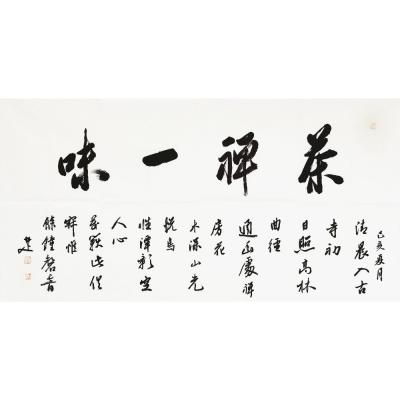 茶禅一味
己亥夏月
清晨入古
寺初
日照高林
曲徑
通幽處禪
房花
木深山光
悦鳥
性潭影空
人心
萬籟此俱
寂惟
餘鐘磬音